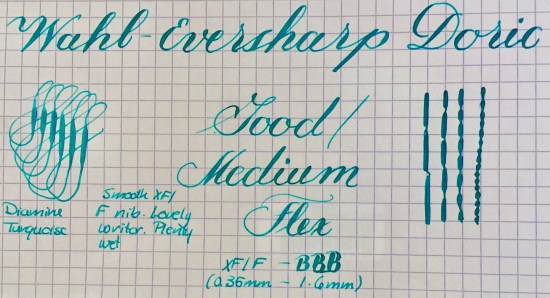 Wahl-Eversharp Doric
Good/
Medium
Flex
Diamine
Turquoise
Smooth XF/
F nib. Lovely
writer. Plenty
wet
XF/F - BBB
(0.35mm - 1.6mm)